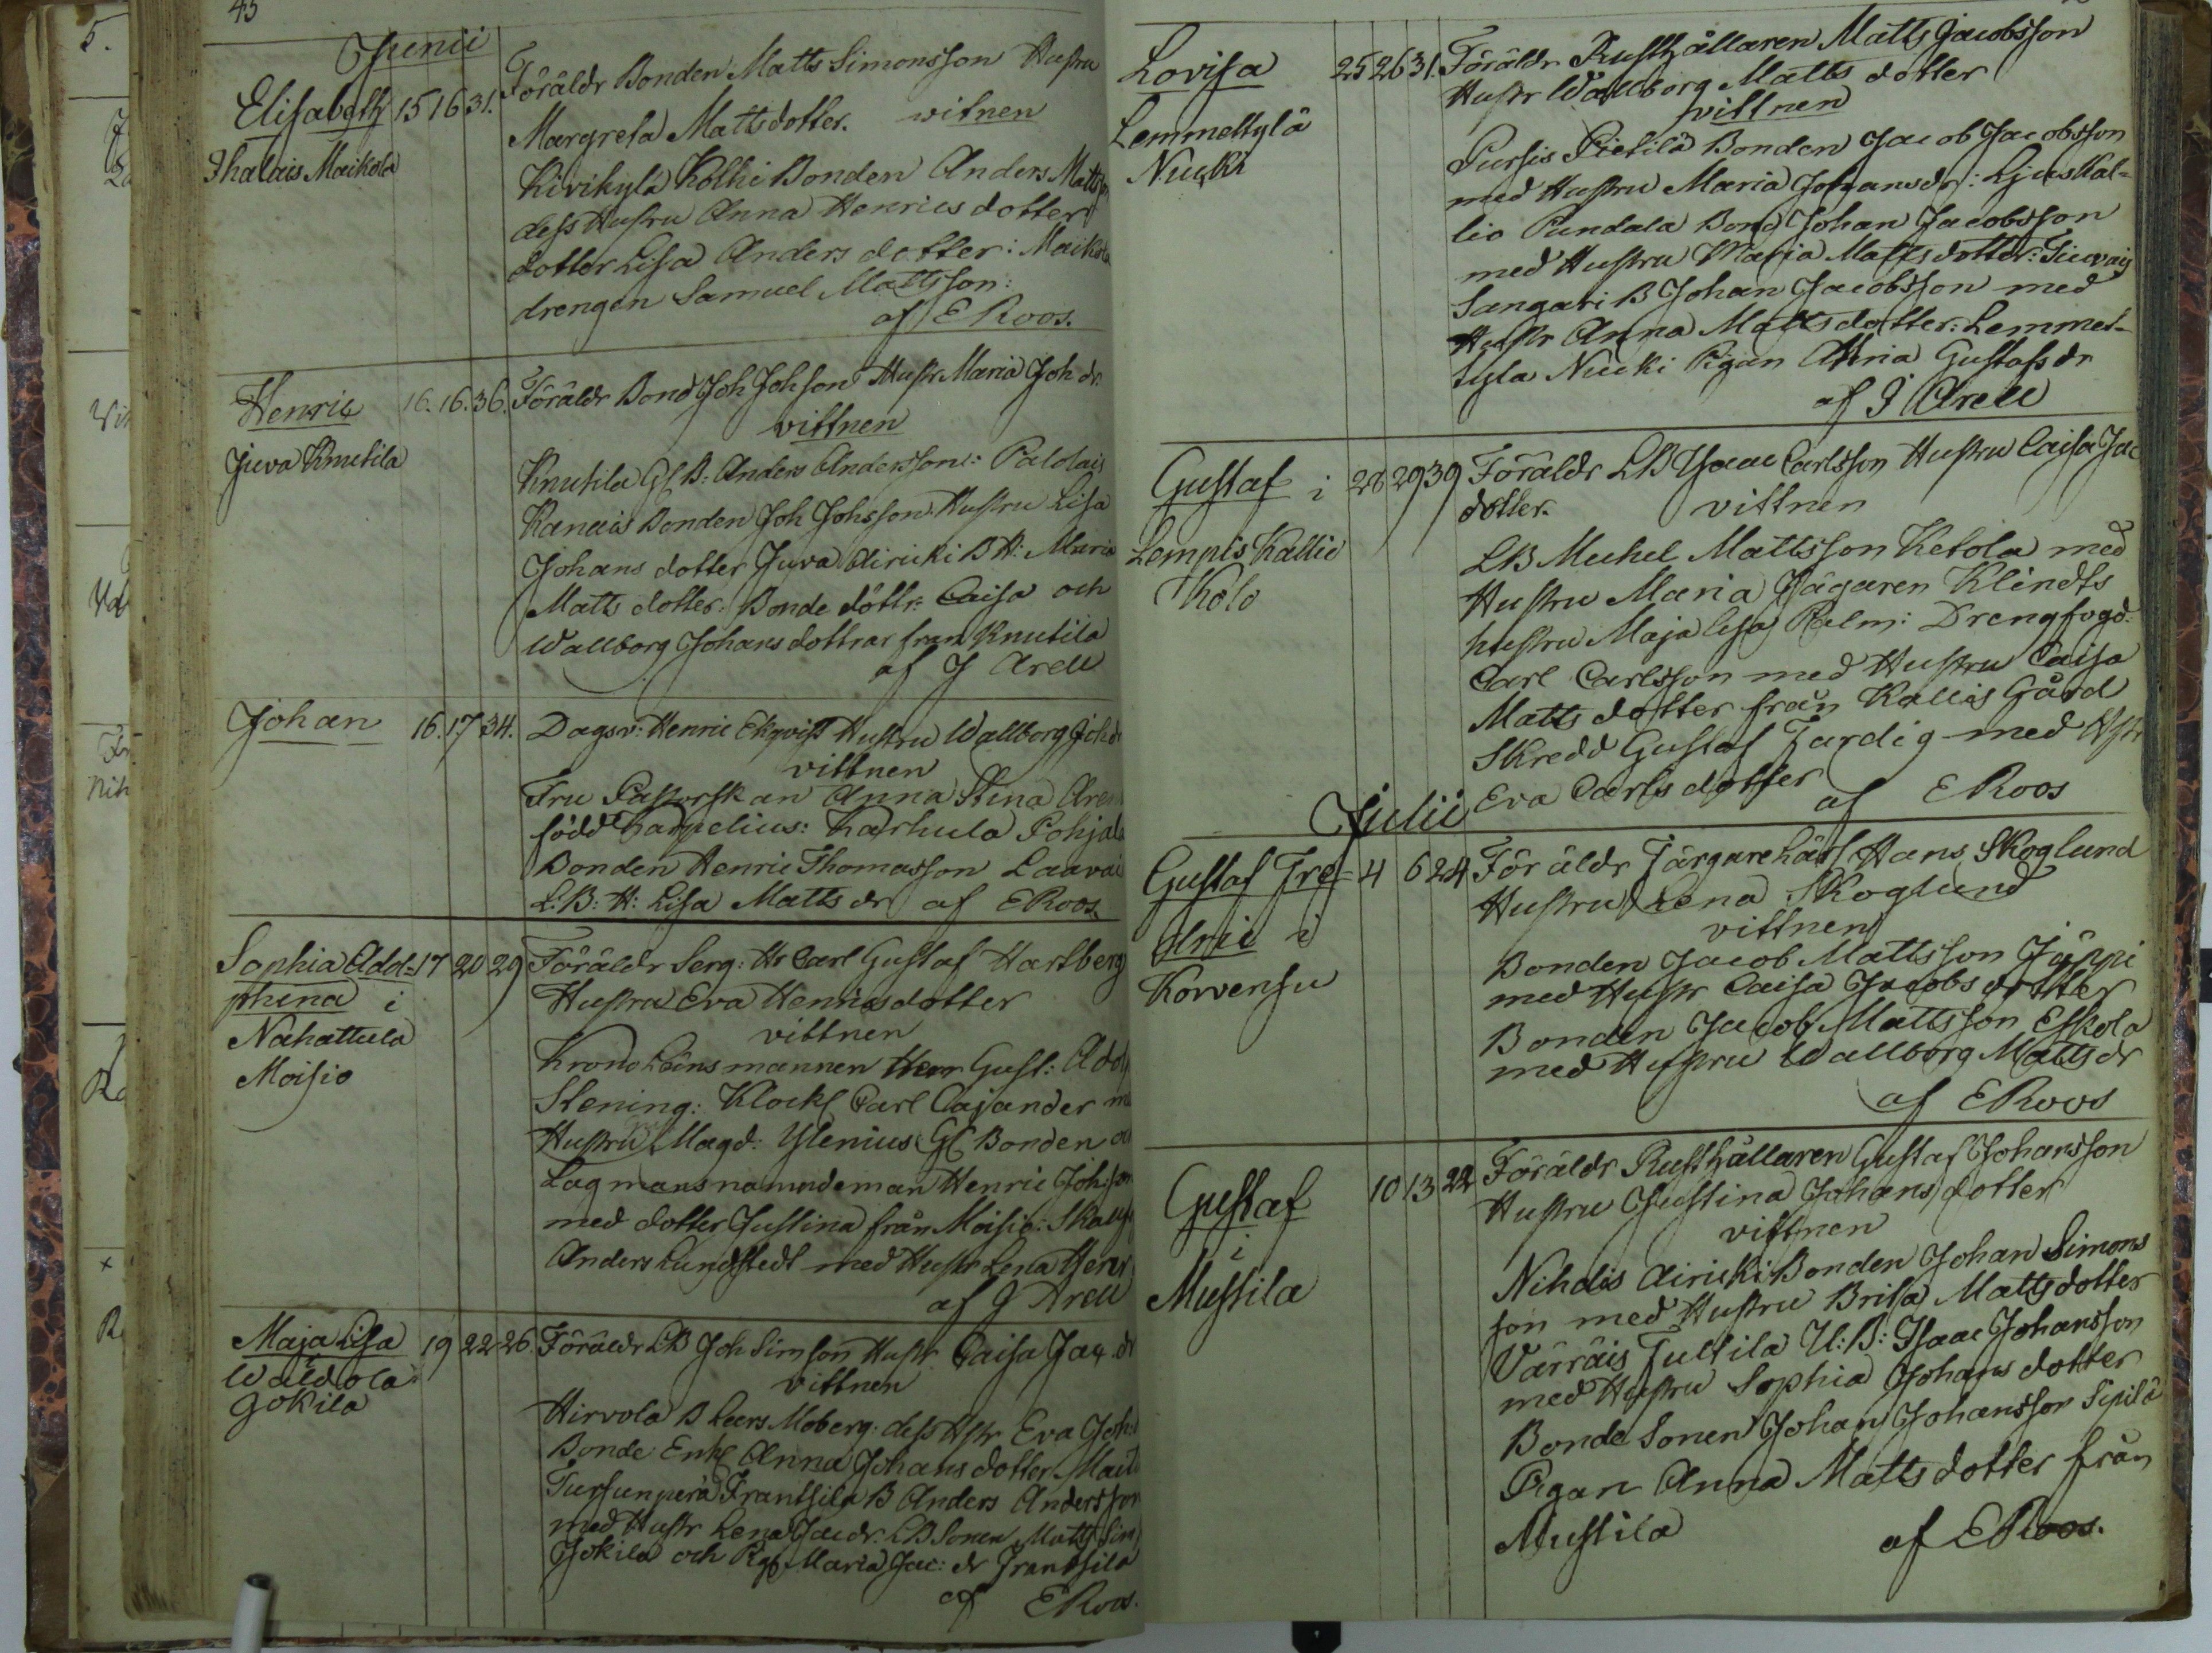 45
Junii
Elisabeth 15 16 31. Föräldr Bonden Matts Simonsson Hustru
Thalais Maikola Margreta Mattsdotter. witnen
Kivikylä Kolki Bonden Anders Matts
dess Hustru Anna Henricsdotter
dotter Lisa Anders dotter: Maikola
drengen Samuel Mattsson:
af E Roos.
Henric 16. 16. 36. Föräldr Bond Joh Johsson Hustr Maria Joh dr.
vittnen
Juva Knutila
Knutila Gl B: Anders Andersson: Palolais
Kanais Bonden Joh Johsson Hustru Lisa
Johans dotter Juva Airicki B H: Maria
Matts dotter: Bonde döttr: Caisa och
Wallborg Johans dottrar fran Knutila
af J Arell
Johan 16. 17 34. Dagsv: Henric Ekqvist Hustru Wallborg Joh dr
vittnen
Fru Pastorskan Anna Stina
född Carpelius: Karhula Pohjala
Bonden Henric Thomasson Laavai
L:B: H: Lisa Matts dr af E Roos.
Sophia Adol= 17 20 29 Föräldr Serg: Hr Carl Gustaf Hartberg
phina i Hustru Eva Henricsdotter
Nahattula vittnen
Moisio Krono Länsmannen Herr Gust: Adol
Stening: Klock Carl Cajander m
Hustru Magd: Ylenius Gl Bonden o
Lagmansnamndeman Henric Johsson
med dotter Justina från Moisio: Skau
Anders Lundstedt med Hustr Lena Henr
af J Arell
Maja Lisa 19 22 26. Föräldr LB Joh Simsson Hustr Caisa Jac. dr
Wäldolä vittnen
Jokila
Hirvola B Leers Moberg: dess Hstr Eva Joh:
Bonde Enk Anna Johans dotter Mait
Tursunperä Frantsila B Anders Andersson
med Hustr Lena Jac dr. LB Sonen Matts Sim
Jokila och Pig Maria Jac: dr Frantsila
af E Roos.
Lovisa 25 26 31. Föräldr Rusthållaren Matts Jacobsson
Hustr Wallborg Matts dotter
Lemmettylä vittnen
Nucki
Pursis Pietilä Bonden Jacob Jacobsson
med Hustru Maria Johansdr: Ljuskal=
lio Pundala Bond Johan Jacobsson
med Hustru Maria Matts dotter:
Sangari B Johan Jacobsson med
Hustr Anna Matts dotter: Lemmet-
tyla Nucki Pigan Maria Gustafs dr
af J Arell
Gustaf i 28 29 39 Föräldr LB Isaac Carlsson Hustru Caisa Jac
dotter. vittnen
Lempis Kallio
Kolo
LB Michel Mattsson Ketola med
Hustru Maria Jägaren Klindts
hustru Maja Lisa Palm: Drengfogd:
Carl Carlsson med Hustru Caisa
Matts dotter från Kallis Gård
Skredd Gustaf Färdig med Hstr
Eva Carlsdotter af E Roos
Julii
Gustaf Fre= 4 6 24 Föräldr Färgare Lärl Hans Skoglund
dric i Hustru Lena Skoglund
Korvensu vittnen
Bonden Jacob Mattsson Jäppi
med Hustr Caisa Jacobs dotter
Bonden Jacob Mattsson Eskola
med Hustru Wallborg Matts dr
af E Roos
Gustaf 10 13 22 Föräldr Rusthållaren Gustaf Johansson
i Hustru Justina Johans dotter
Mustila vittnen
Nihdis Airicki Bonden Johan Simons
son med Hustru Brita Matts dotter
Värräis Jullila U:B: Isaac Johansson
med Hustru Sophia Johans dotter
Bonde Sonen Johan Johansson Sipilä
Pigan Anna Matts dotter från
Mustila af E Roos.